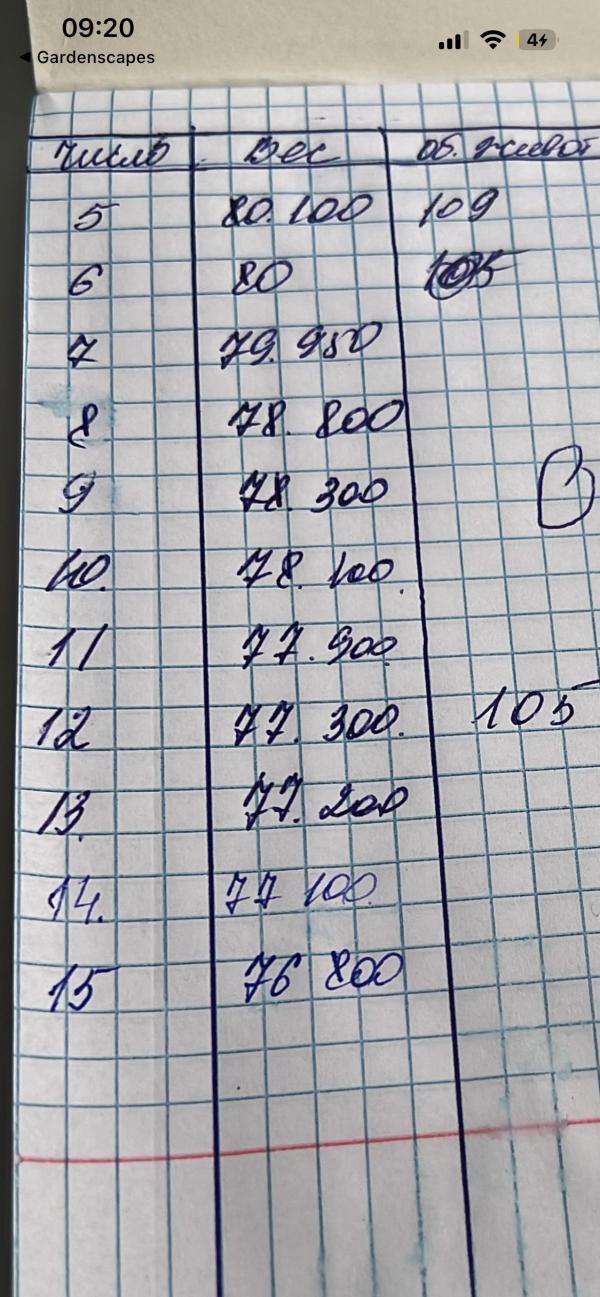 09:20
4
Gardenscapes
число вес об. живот
5 80.100 109
6 80
7 79.950
8 78.800
9 78.300
10. 78.100.
11 77.900
12 77.300. 105
13. 77.200
14. 77 100.
15 76 800